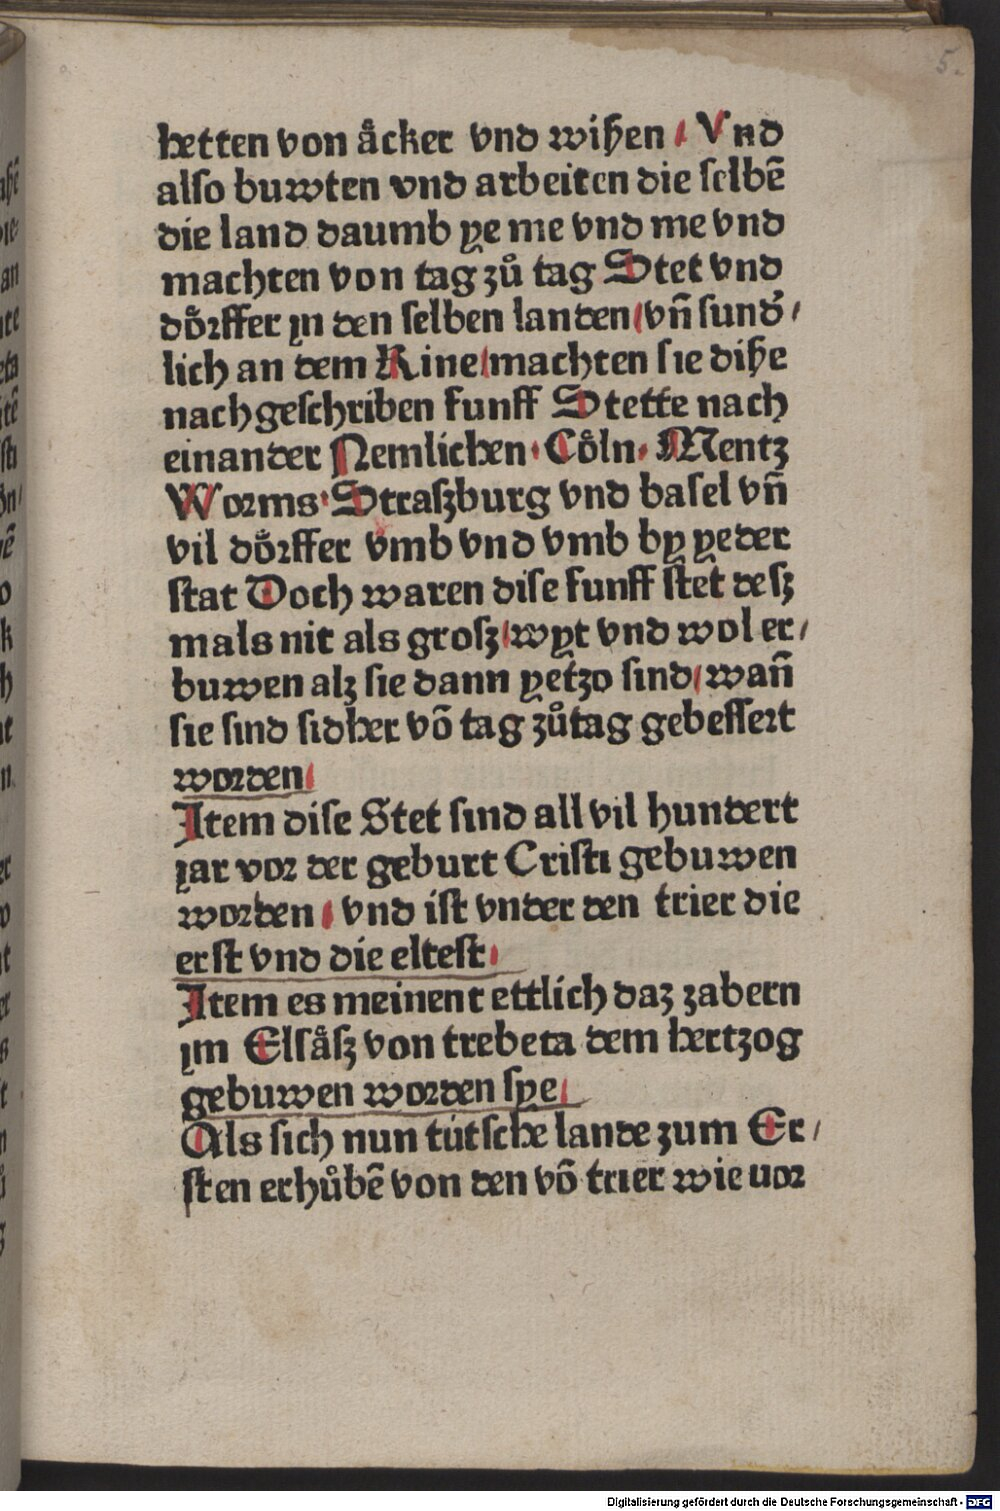 5.
hetten von aͤcker vnd wiſzen / Vnd
alſo buwten vnd arbeiten die ſelbē
die land daumb ye me vnd me vnd
machten von tag zuͦ tag Stet vnd
doͤrffer jn den ſelben landen/vn̄ ſund̕/
lich an dem Rine/machten ſie diſze
nachgeſchriben funff Stette nach
einander Nemlichen· Coͤln· Mentz
Worms· Straſzburg vnd baſel vn̄
vil doͤrffer vmb vnd vmb by yeder
ſtat Doch waren diſe funff ſtet deſz
mals nit als groſz/wyt vnd wol er/
buwen alz ſie dann yetzo ſind/wan̄
ſie ſind ſidher vō tag zuͦtag gebeſſert
worden/
Item diſe Stet ſind all vil hundert
jar vor der geburt Criſti gebuwen
worden / vnd iſt vnder den trier die
erſt vnd die elteſt/
Item es meinent ettlich daz zabern
jm Elſaͤſz von trebeta dem hertzog
gebuwen worden ſye/
Als ſich nun tútſche lande zum Er/
ſten erhuͦbē von den vō trier wie uor
Digitalisierung gefördert durch die Deutsche Forschungsgemeinschaft - DFG